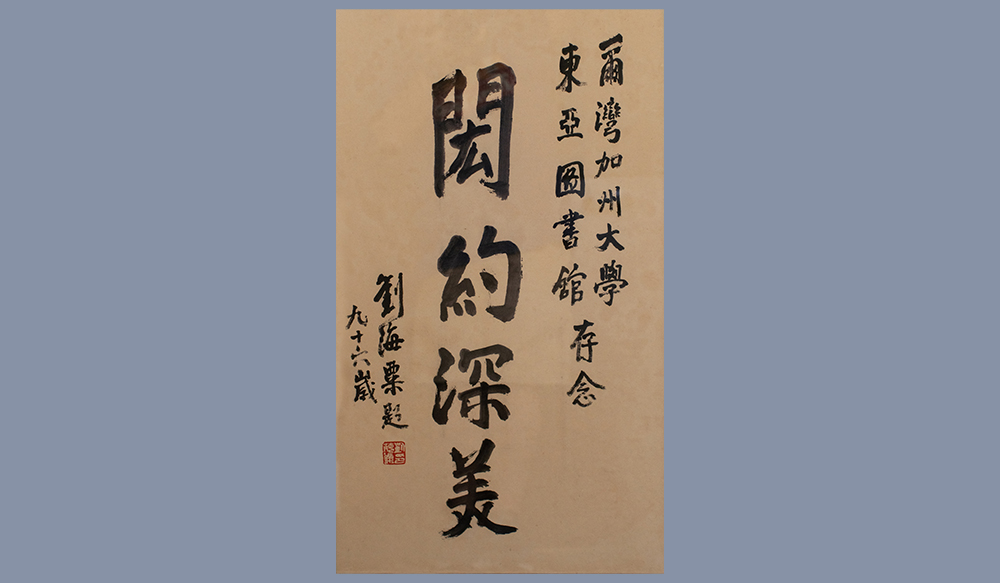 爾灣加州大學
東亞圖書舘
存念
閎約深美
劉海粟題
九十六歲